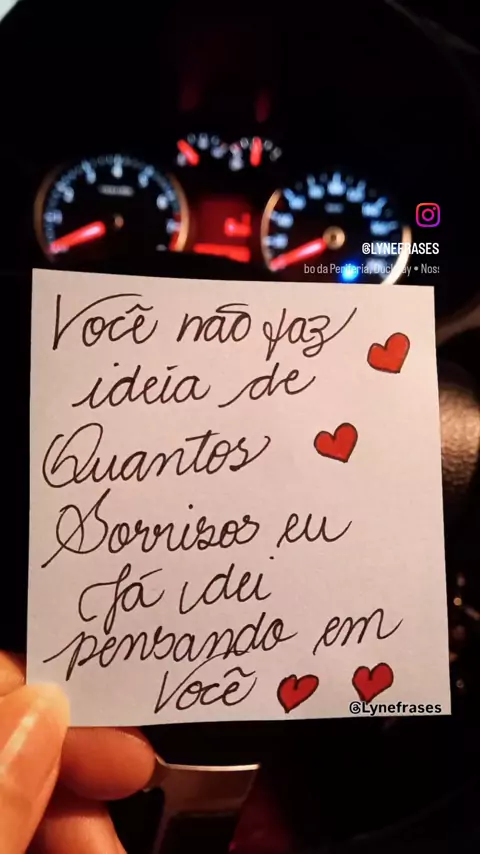 @LYNEFRASES
bo da Periferia, Duckjay • Nos
Você não faz
ideia de
Quantos
Sorrisos eu
Já dei
pensando em
Você
@Lynefrases